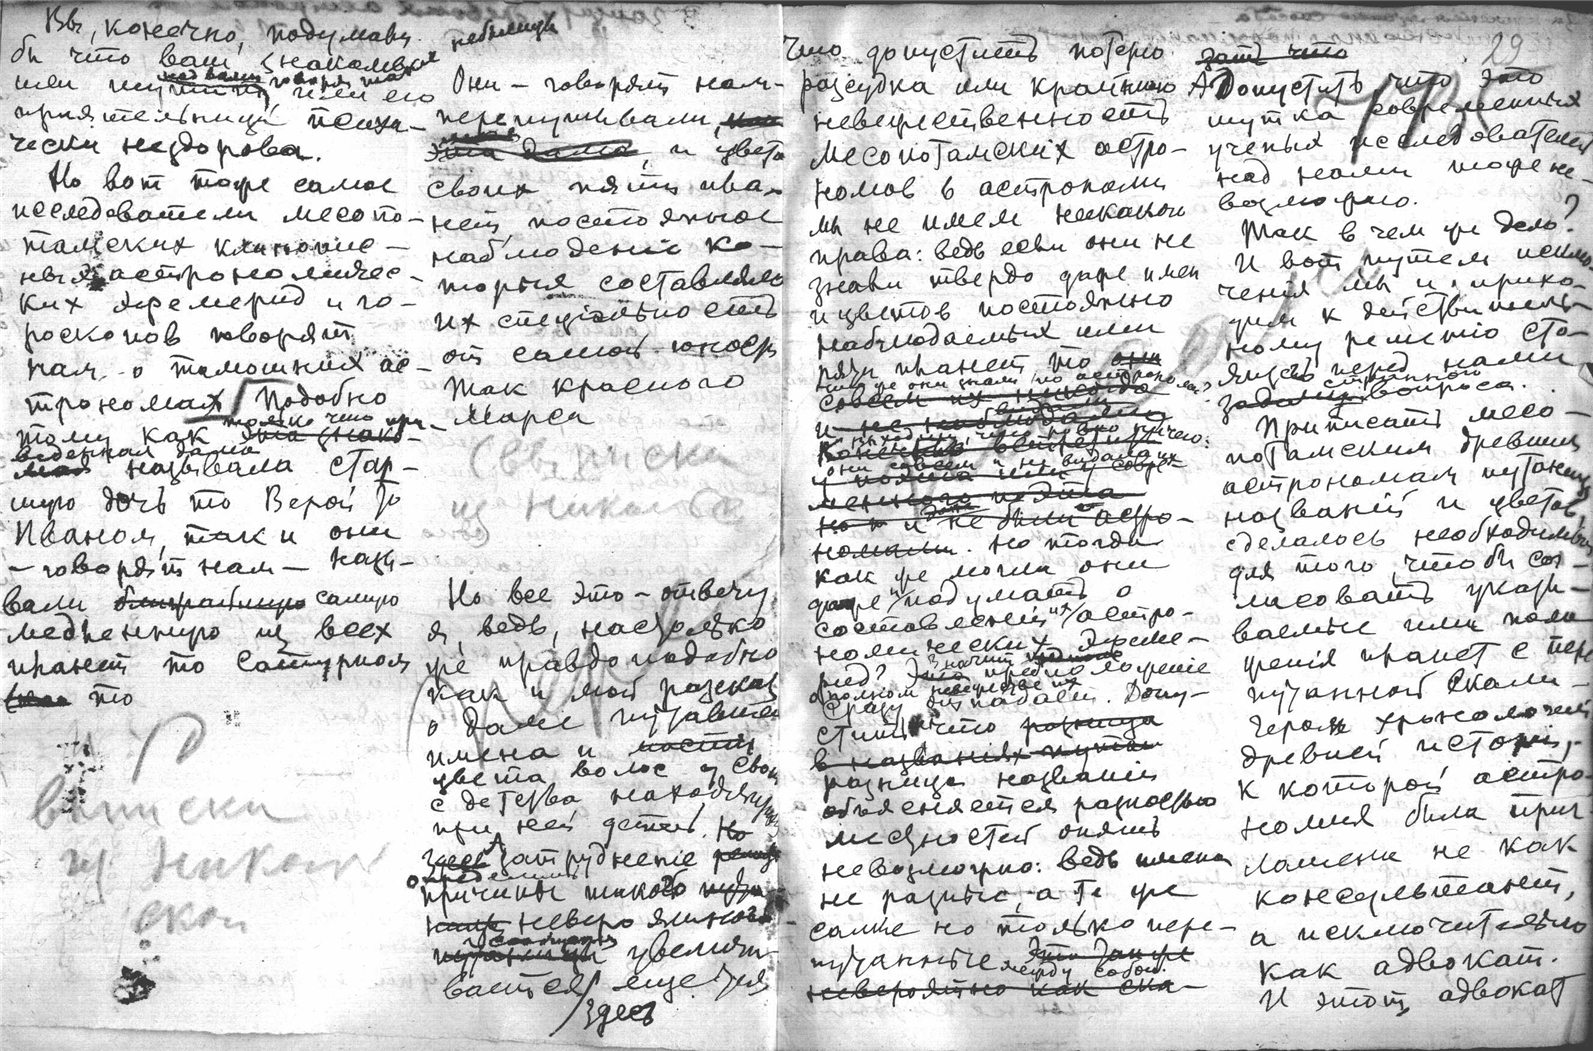 Вы, конечно, подумали
бы что ваш знакомый
или шутит над вами говоря так или его
приятельница психи-
чески нездорова.
Но вот тоже самое
исследователи месопо-
тамских клинопис-
ных астрономичес-
ких эфемерид и го-
роскопов говорят
нам о тамошних ас-
трономах. Подобно
тому как только что при-
веденная дама
называла стар-
шую дочь то Верой то
Иваном, так и они
- говорят нам - назы-
вали самую
медленную из всех
планет то Сатурном
то
выписки
из Николь
ской
небылица
Они - говорят нам -
перепутывали,
и цвета
своих пяти пла-
нет, постоянное
наблюдение ко-
торых составляло
их специальность
от самой юности
Так красного
Марса
(выписки
из Никольск
Но все это - отвечу
я, ведь, настолько
же правдоподобно
как и мой рассказ
о даме путавшей
имена и
цвета волос у своих
с детства находящихся
при ней детей.
затруднение
определить
причины такого
невероятного
сообщения увеличи-
вается еще тем
здесь
29
что допустить потерю
разсудка или крайнюю
невежественность
месопотамских астро-
номов в астрономии
мы не имеем никакого
права: ведь если они не
знали твердо даже имен
и цветов постоянно
наблюдаемых ими
пяти планет, то
что же они знали по астрономии?
Выходит, что ровно ничего:
они совсем и не видали их
но тогда
как же могли они
даже подумать о
составлении их астро-
номических эфеме-
рид? Значит предположение
о полном невежестве их
сразу отпадает. Допу-
стить что
разница названий
объясняется разностью
местностей опять
невозможно: ведь имена
не разные, а те же
самые но только пере-
путанные
между собой.
зать что
А Допустить что это
шутка современных
ученых исследователей
над нами тоже не-
возможно.
Так в чем же дело?
И вот путем исклю-
чения мы и прихо-
дим к действитель-
ному решению сто-
ящего перед нами
странного
вопроса.
Приписать месо-
потамским древним
астрономам путаницу
названий и цветов
сделалось необходимым
для того, чтобы сог-
ласовать указы-
ваемые ими поло
жения планет с пере
путанной Скали-
гером хронологией
древней истории,
к которой астро
номия была приг
лашена не как
консультант,
а исключительно
как адвокат.
И этот адвокат